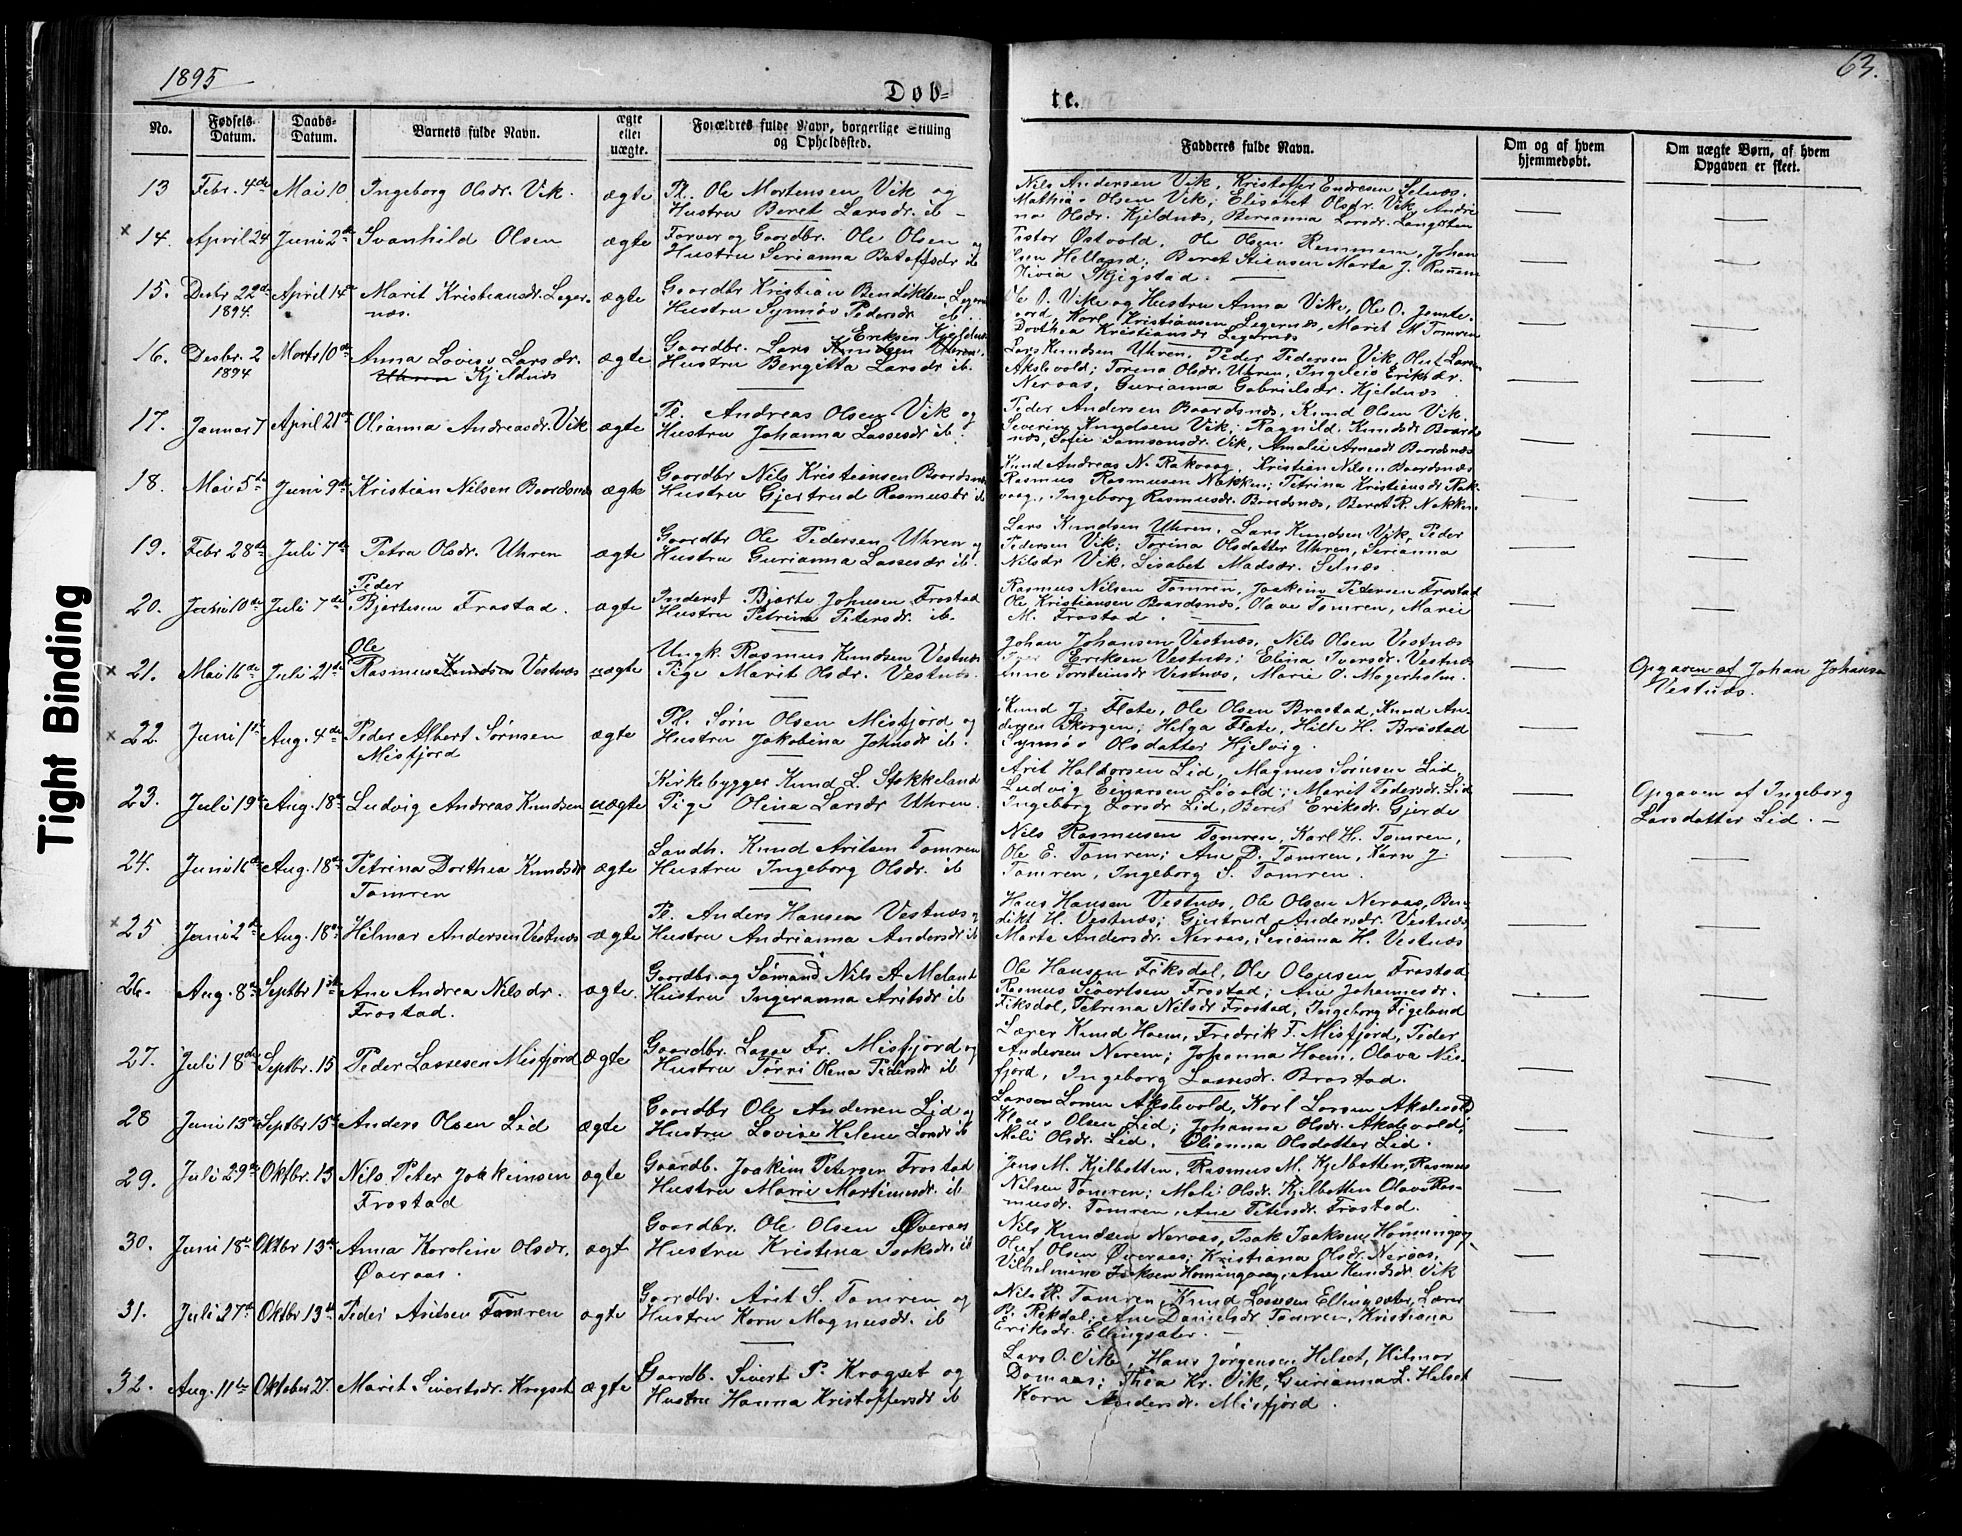 1895
63.
Døb-
te.
No.
Fødsels-
Datum.
Daabs-
Datum.
Barnets fulde Navn.
ægte
eller
uægte.
Forældres fulde Navn, borgerlige Stilling
og Opholdssted.
Fadderes fulde Navn.
Om og af hvem
hjemmedøbt.
Om uægte Børn, af hvem
Opgaven er skeet.
13 Febr. 4de Mai 10 Ingeborg Olsdr. Vik. ægte Pl. Ole Mortensen Vik og
Hustru Beret Larsdr. ib -
Nils Andersen Vik, Kristoffer Endresen Selnæs.
Mathias Olsen Vik; Elisabet Olsdr. Vik, Andri
na Olsdr. Kjeldnæs, Berianna Larsdr. Langsten
x 14. April 24 Juni 2de Svanhild Olsen ægte Farver og Gaardbr. Ole Olsen og
Hustru Serianna Botolfsdr ib
Pastor Østvold, Ole Olsen Remmem, Johan
Helland, Beret Stensen Marta J.
Olivia Skjegstad.
15. Desbr 22de April 14de Marit Kristiansdr. Leger- ægte Gaardbr Kristian Bendiktsen Legernæs
1894. næs. Hustru Synnøv Pedersdr ib.
Ole O. Vike og Hustru Anna Vike, Ole O. Jemte-
gaard, Karl Kristiansen Legernæs, Marit M Tomren
Dorthea Kristiansdr Legernæs
16. Desbr. 2 Marts 10de Anna Lovise Larsdr. ægte Gaardbr. Lars Knudsen Uhren. Eriksen Kjeldnæs
1894 Uhren Kjeldnæs Hustru Bergitta Larsdr ib.
Lars Knudsen Uhren, Peder Pedersen Vik, Oluf Larsen
Akslevold; Torina Olsdr. Uhren, Ingeleiv Eriksdr.
Neraas, Gurianna Gabrielsdr. Kjeldnæs.
17. Januar 7 April 21de Olianna Andreasdr. Vik ægte Pl. Andreas Olsen Vik og
Hustru Johanna Lassesdr ib.
Peder Andersen Baardsnæs, Knud Olsen Vik.
Severin Knudsen Vik; Ragnild Knudsdr Baards
næs, Sofie Samsonsdr. Vik, Amalie Arnesdr Baardsnæs
18. Mai 5te Juni 9de Kristian Nilsen Baardsnæs ægte Gaardbr Nils Kristiansen Baardsnæs
Hustru Gjertrud Rasmusdr ib
Knud Andreas N. Rakvaag, Kristian Nilsen Baardsnæs
Rasmus Rasmusen Nakken; Petrina Kristiansdr Rak-
vaag, Ingeborg Rasmusdr. Baardsnæs, Beret R. Nakken
19. Febr 28de Juli 7de Petra Olsdr. Uhren ægte Gaardbr Ole Pedersen Uhren og
Hustru Gurianna Lassesdr ib.
Lars Knudsen Uhren, Lars Knudsen Vik, Peder
Pedersen Vik; Torina Olsdatter Uhren, Serianna
Nilsdr Vik, Lisabet Madsdr. Selnæs.
Peder
20. Juni 10de Juli 7de Bjertesen Frostad. ægte Inderst Bjarte Johnsen Frostad
Hustru Petrina Petersdr. ib.
Rasmus Nilsen Tomren, Joakim Petersen Frostad
Ole Kristiansen Baardsnæs, Olave Tomren, Marie
M. Frostad.
Ole
x 21. Mai 16de Juli 21de Rasmusen Knudsen Vestnæs uægte Ungk. Rasmus Knudsen Vestnæs
Pige Marit Olsdr. Vestnæs.
Johan Johansen Vestnæs, Nils Olsen Vestnæs
Eriksen Vestnæs; Elina Iversdr. Vestnæs
Anne Torsteinsdr Vestnæs, Marie O. Magerholm.
Opgaven af Johan Johansen
Vestnæs.
x 22. Juni 1ste Aug. 4de Peder Albert Sørnsen ægte Pl. Sørn Olsen Misfjord og
Misfjord Hustru Jakobina Johnsdr ib.
Knud J. Flate, Ole Olsen Brastad, Knud An-
dersen Skorgen; Helga Flate, Hilde H. Brastad
Synnøv Olsdatter Hjelvig.
23. Juli 19de Aug. 18de Ludvig Andreas Knudsen uægte Kirkebygger Knud L. Stokkeland
Pige Olina Larsdr Uhren.
Arit Haldorsen Lid, Magnus Sørnsen Lid,
Ludvig Einarsen Løvold; Marit Pedersdr. Lid
Ingeborg Larsdr Lid, Beret Eriksdr. Gjerde
Opgaven af Ingeborg
Larsdatter Lid. -
24. Juni 16de Aug. 18de Petrina Dorthea Knudsdr ægte Landh. Knud Aritsen Tomren
Tomren Hustru Ingeborg Olsdr. ib
Nils Rasmusen Tomren, Karl H. Tomren,
Ole E. Tomren; Ane D. Tomren, Karn J.
Tomren, Ingeborg S. Tomren.
x 25 Juni 2de Aug. 18de Hilmar Andersen Vestnæs ægte Pl. Anders Hansen Vestnæs og
Hustru Andrianna Andersdr ib
Hans Hansen Vestnæs, Ole Olsen Neraas, Ben-
dikt H. Vestnæs; Gjertrud Andersdr. Vestnæs
Marta Andersdr. Neraas, Serianna H. Vestnæs
26. Aug. 8de Septbr 1ste Ane Andrea Nilsdr. ægte. Gaardbr. og Sømand Nils A. Meland
Frostad. Hustru Ingeranna Aritsdr ib
Ole Hansen Fiksdal, Ole Olausen Frostad
Rasmus Sivertsen Frostad; Ane Johannesdr.
Fiksdal, Petrina Nilsdr Frostad, Ingeborg Figeland
27. Juli 18de Septbr. 15 Peder Lassesen Misfjord ægte Gaardbr. Lasse Fr. Misfjord og
Hustru Tørri Olena Pedersdr ib
Lærer Knud Hoem, Fredrik F. Misfjord, Peder
Andersen Nerem; Johanna Hoem, Olava Mis-
fjord, Ingeborg Lassesdr. Brastad.
28 Juni 13de Septbr. 15de Anders Olsen Lid ægte Gaardbr Ole Andersen Lid og
Hustru Lovise Helene Larsdr ib
Larsen Akslevold, Karl Larsen Akslevold
Klaus Olsen Lid; Johanna Olsdr. Akslevold;
Mali Olsdr. Lid. Olianna Olsdatter Lid.
29. Juli 29de Oktbr. 13 Nils Peter Joakimsen ægte Gaardb. Joakim Petersen Frostad
Frostad Hustru Marie Martinusdr. ib
Jens M. Kjelbotten, Rasmus M. Kjelbotten, Rasmus
Nilsen Tomren; Mali Olsdr. Kjelbotten Olave Ras-
musdr. Tomren, Ane Petersdr. Frostad.
30. Juni 18de Oktbr 13de Anna Karoline Olsdr. ægte Gaardbr. Ole Olsen Øveraas
Øveraas. Hustru Kristina Isaksdr. ib
Nils Knudsen Neraas, Isak Isaksen Hammingvog
Oluf Olsen Øveraas; Kristiana Olsdr. Neraas,
Vilhelmine Isaksen Hamingvaag, Ane Knudsdr Vik
31. Juli 27de Oktbr 13de Peder Aritsen Tomren ægte Gaardbr. Arit S. Tomren og
Hustru Karn Magnusdr. ib
Nils R. Tomren, Knud Lassesen Ellingsæter, Lærer
P. Rekdal; Ane Danielsdr Tomren, Kristiana
Eriksdr. Ellingsæter. -
32. Aug. 11te Oktober 27. Marit Sivertsdr. Kragset ægte Gaardb. Sivert P. Kragset og
Hustru Hanna Kristoffersdr ib
Lars O. Vik, Hans Jørgensen Helset, Hilmar
Domaas; Thea Kr. Vik, Gurianna L. Helset
Karn Andersdr. Misfjord.
Tight Binding